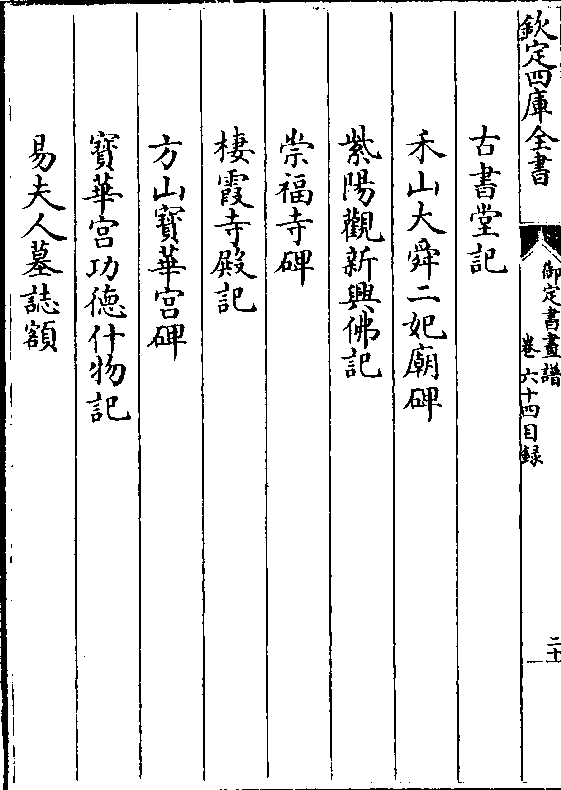 欽定四庫全書
御定書畫譜
卷六十四目録
二十
古書堂記
禾山大舜二妃廟碑
紫陽觀新興佛記
崇福寺碑
棲霞寺殿記
方山寶華宫碑
寶華宫功徳什物記
易夫人墓誌額